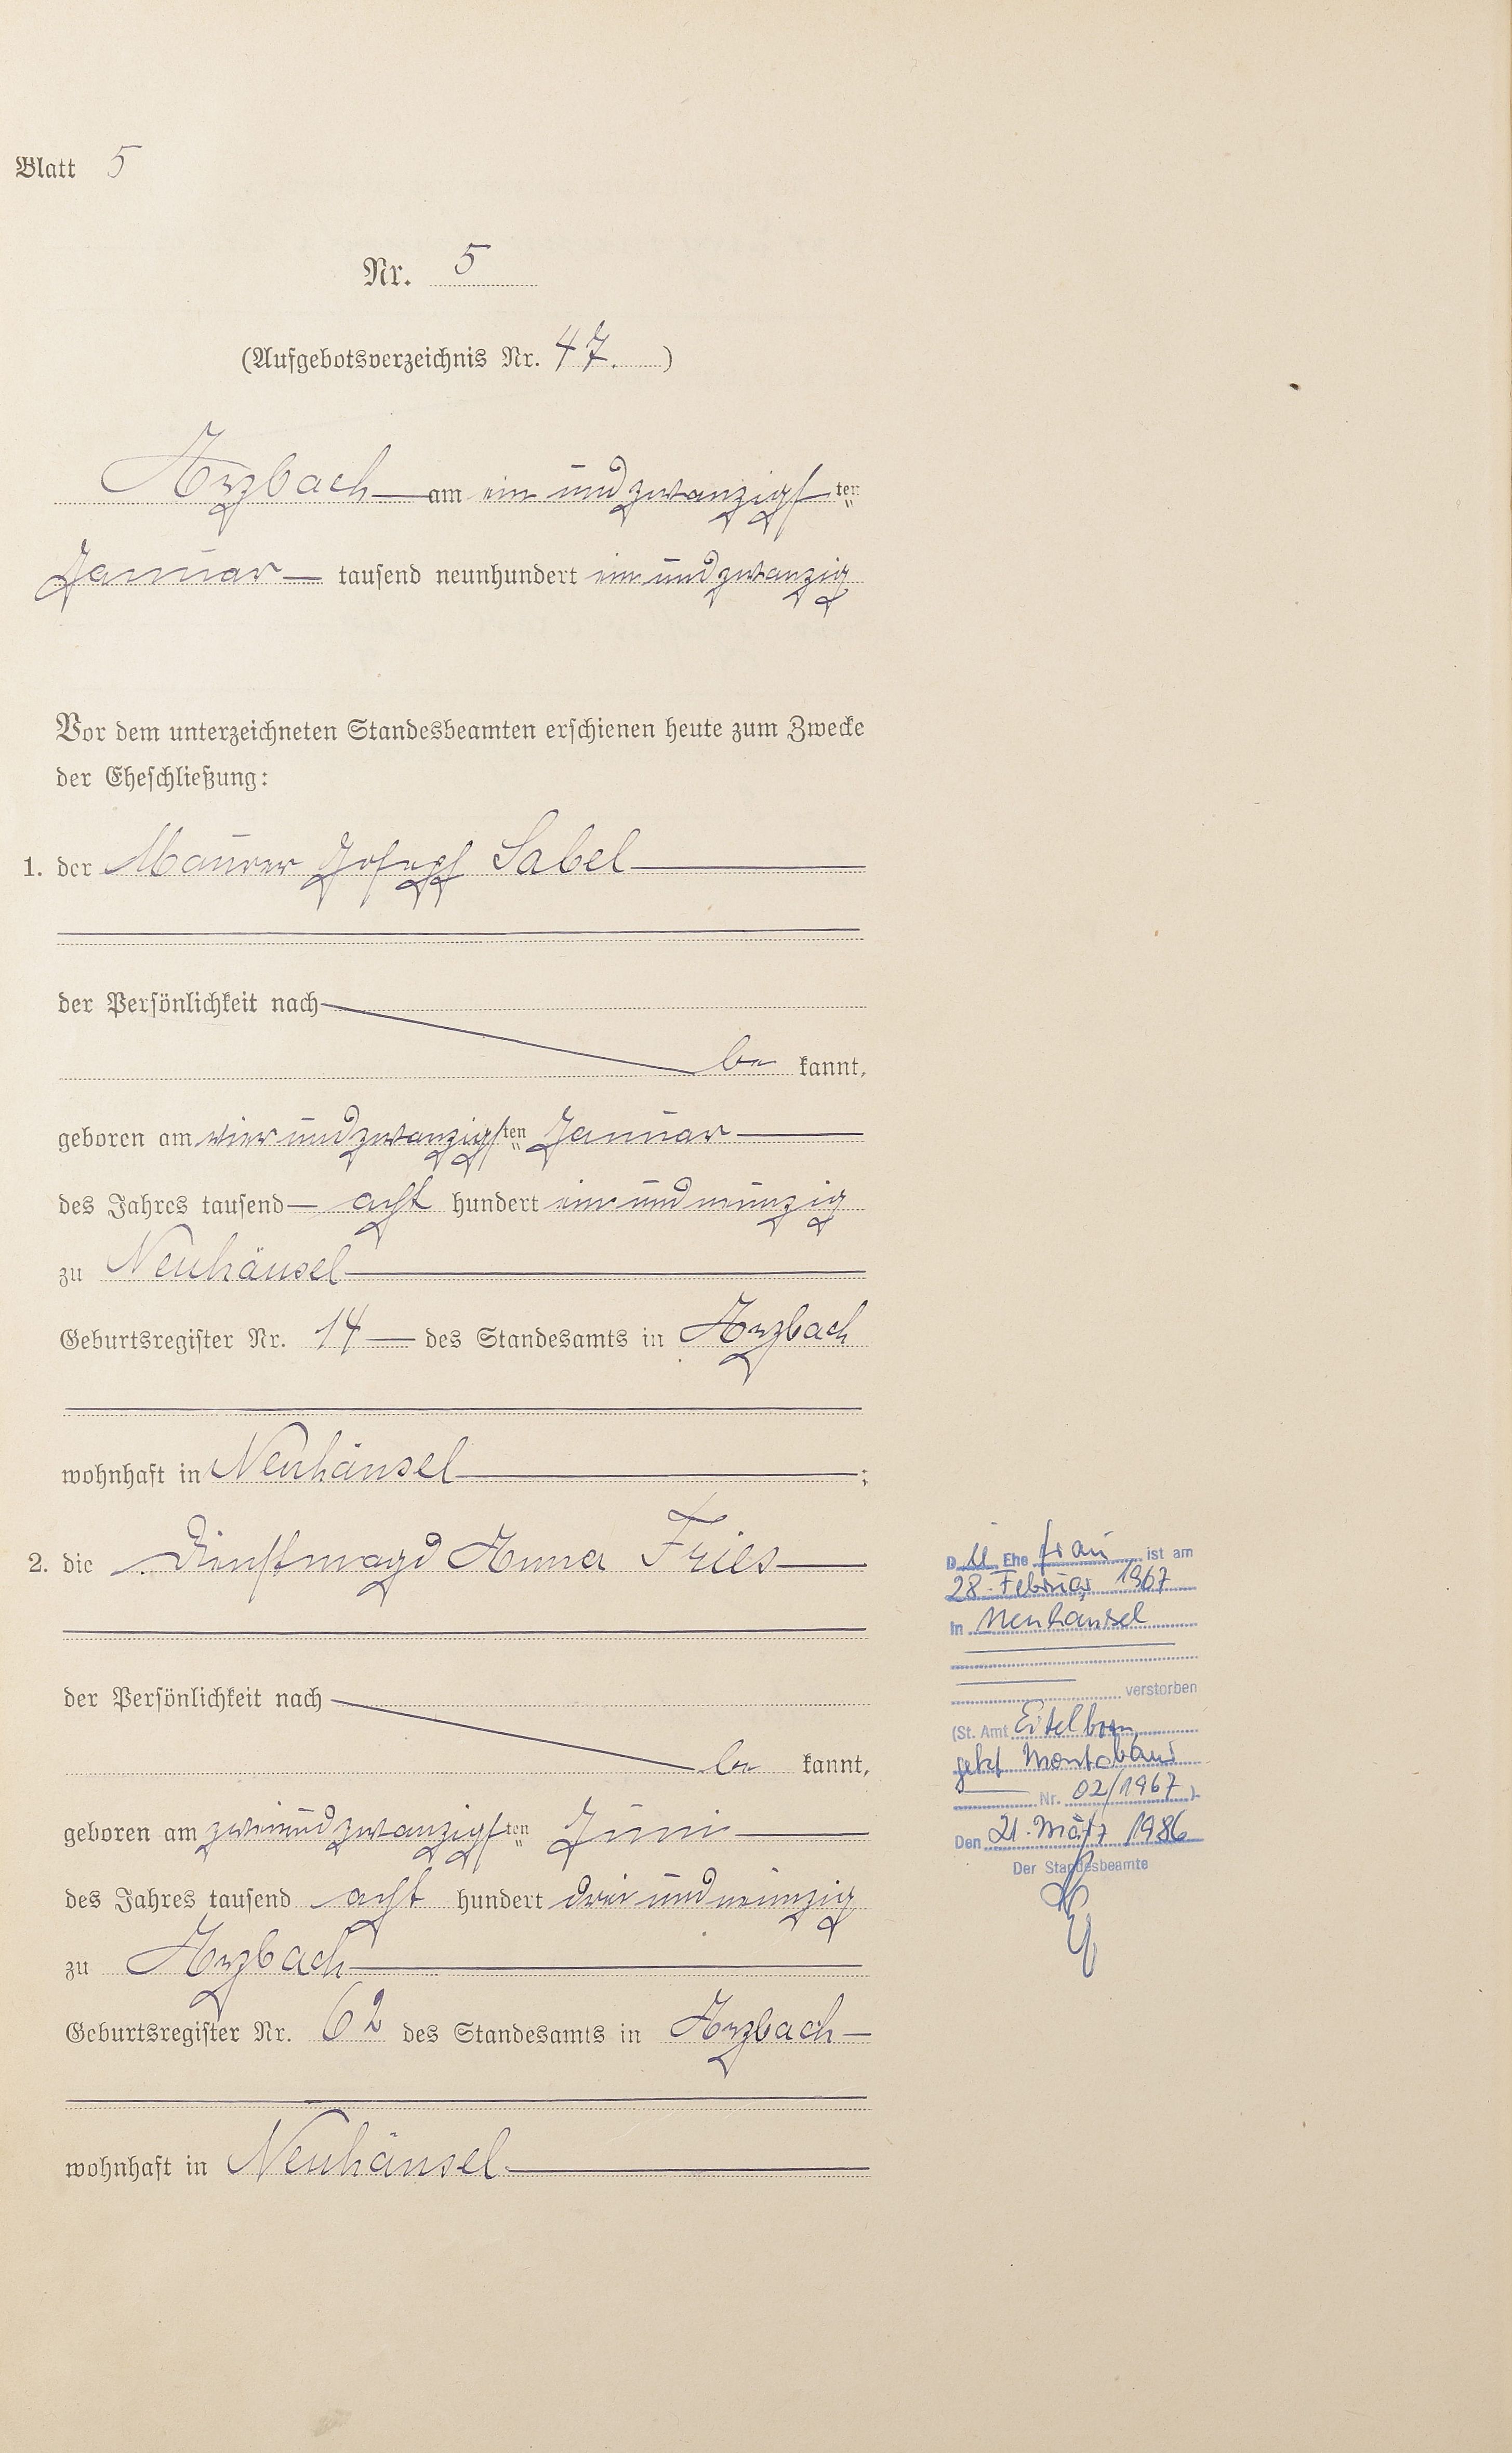 Blatt 5
Nr. 5
(Aufgebotsverzeichnis Nr. 47.)
Arzbach am ein und zwanzigsten
Januar tausend neunhundert ein und zwanzig
Vor dem unterzeichneten Standesbeamten erschienen heute zum Zwecke
der Eheschließung:
1. der Maurer Joseph Sabel
der Persönlichkeit nach
be kannt,
geboren am vier und zwanzigsten Januar
des Jahres tausend acht hundert ein und neunzig
zu Neuhäusel
Geburtsregister Nr. 14 des Standesamts in Arzbach
wohnhaft in Neuhäusel ;
2. die Dienstmagd Anna Fries
der Persönlichkeit nach
be kannt,
geboren am zwei und zwanzigsten Juni
des Jahres tausend acht hundert drei und neunzig
zu Arzbach
Geburtsregister Nr. 62 des Standesamts in Arzbach
wohnhaft in Neuhäusel
D ie Ehe frau ist am
28. Februar 1967
in Neuhäusel
verstorben
(St. Amt Eitelborn,
jetzt Montabaur
Nr. 02/1967)
Den 21. März 1986
Der Standesbeamte